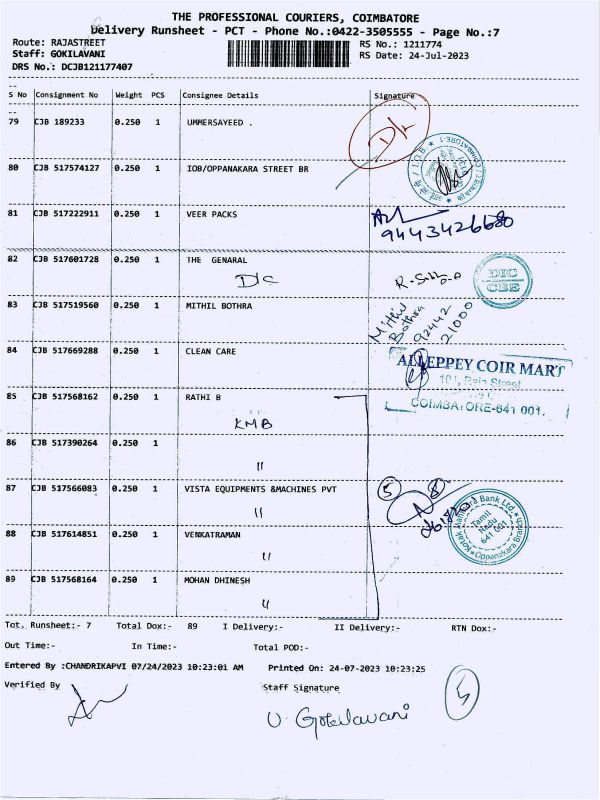 THE PROFESSIONAL COURIERS, COIMBATORE
Delivery Runsheet - PCT - Phone No.:0422-3505555 - Page No.:7
Route: RAJASTREET
RS No.: 1211774
Staff: GOKILAVANI
RS Date: 24-Jul-2023
DRS No.: DCJB121177407
S No Consignment No Weight PCS Consignee Details Signature
79 CJB 189233 0.250 1 UMMERSAYEED .
D/L
80 CJB 517574127 0.250 1 IOB/OPPANAKARA STREET BR
81 CJB 517222911 0.250 1 VEER PACKS
9443426680
82 CJB 517601728 0.250 1 THE GENARAL
DIC
DIC
CBE
83 CJB 517519560 0.250 1 MITHIL BOTHRA
Mithil
Bothra
92442
21000
84 CJB 517669288 0.250 1 CLEAN CARE
ALLEPPEY COIR MART
101, Raja Street
COIMBATORE-641 001.
85 CJB 517568162 0.250 1 RATHI B
KMB
86 CJB 517390264 0.250 1
"
87 CJB 517566083 0.250 1 VISTA EQUIPMENTS &MACHINES PVT
"
5
Kotak Mahindra Bank Ltd.
Tamil
Nadu
641 001
Oppanakara Branch
88 CJB 517614851 0.250 1 VENKATRAMAN
"
89 CJB 517568164 0.250 1 MOHAN DHINESH
"
Tot. Runsheet:- 7 Total Dox:- 89 I Delivery:- II Delivery:- RTN Dox:-
Out Time:- In Time:- Total POD:-
Entered By :CHANDRIKAPVI 07/24/2023 10:23:01 AM Printed On: 24-07-2023 10:23:25
Verified By Staff Signature
V. Gokilavani